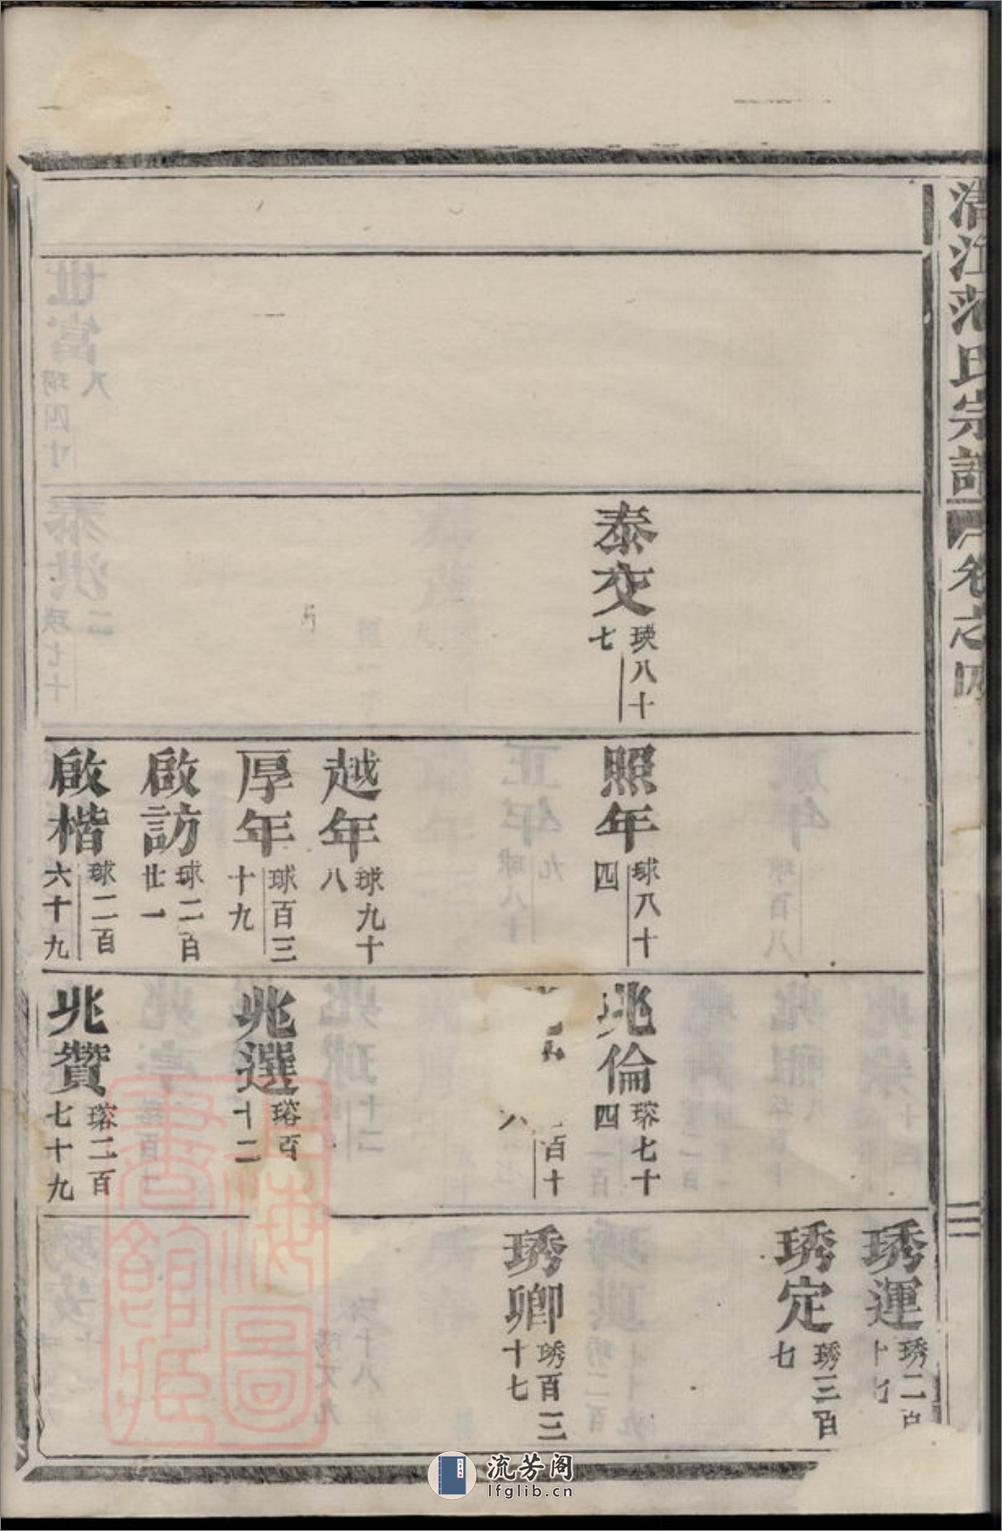 清江范氏宗譜 卷之四
二
泰交 瑛八十七
照年 球八十四
越年 球九十八
厚年 球百三十九
啟訪 球二百廿一
啟楷 球二百六十九
兆倫 瑢七十四
百十八
兆選 瑢百十二
兆贊 瑢二百七十九
琇運 琇二百十七
琇定 琇三百七
琇卿 琇百三十七
上海圖書館藏
流芳阁
lfglib.cn